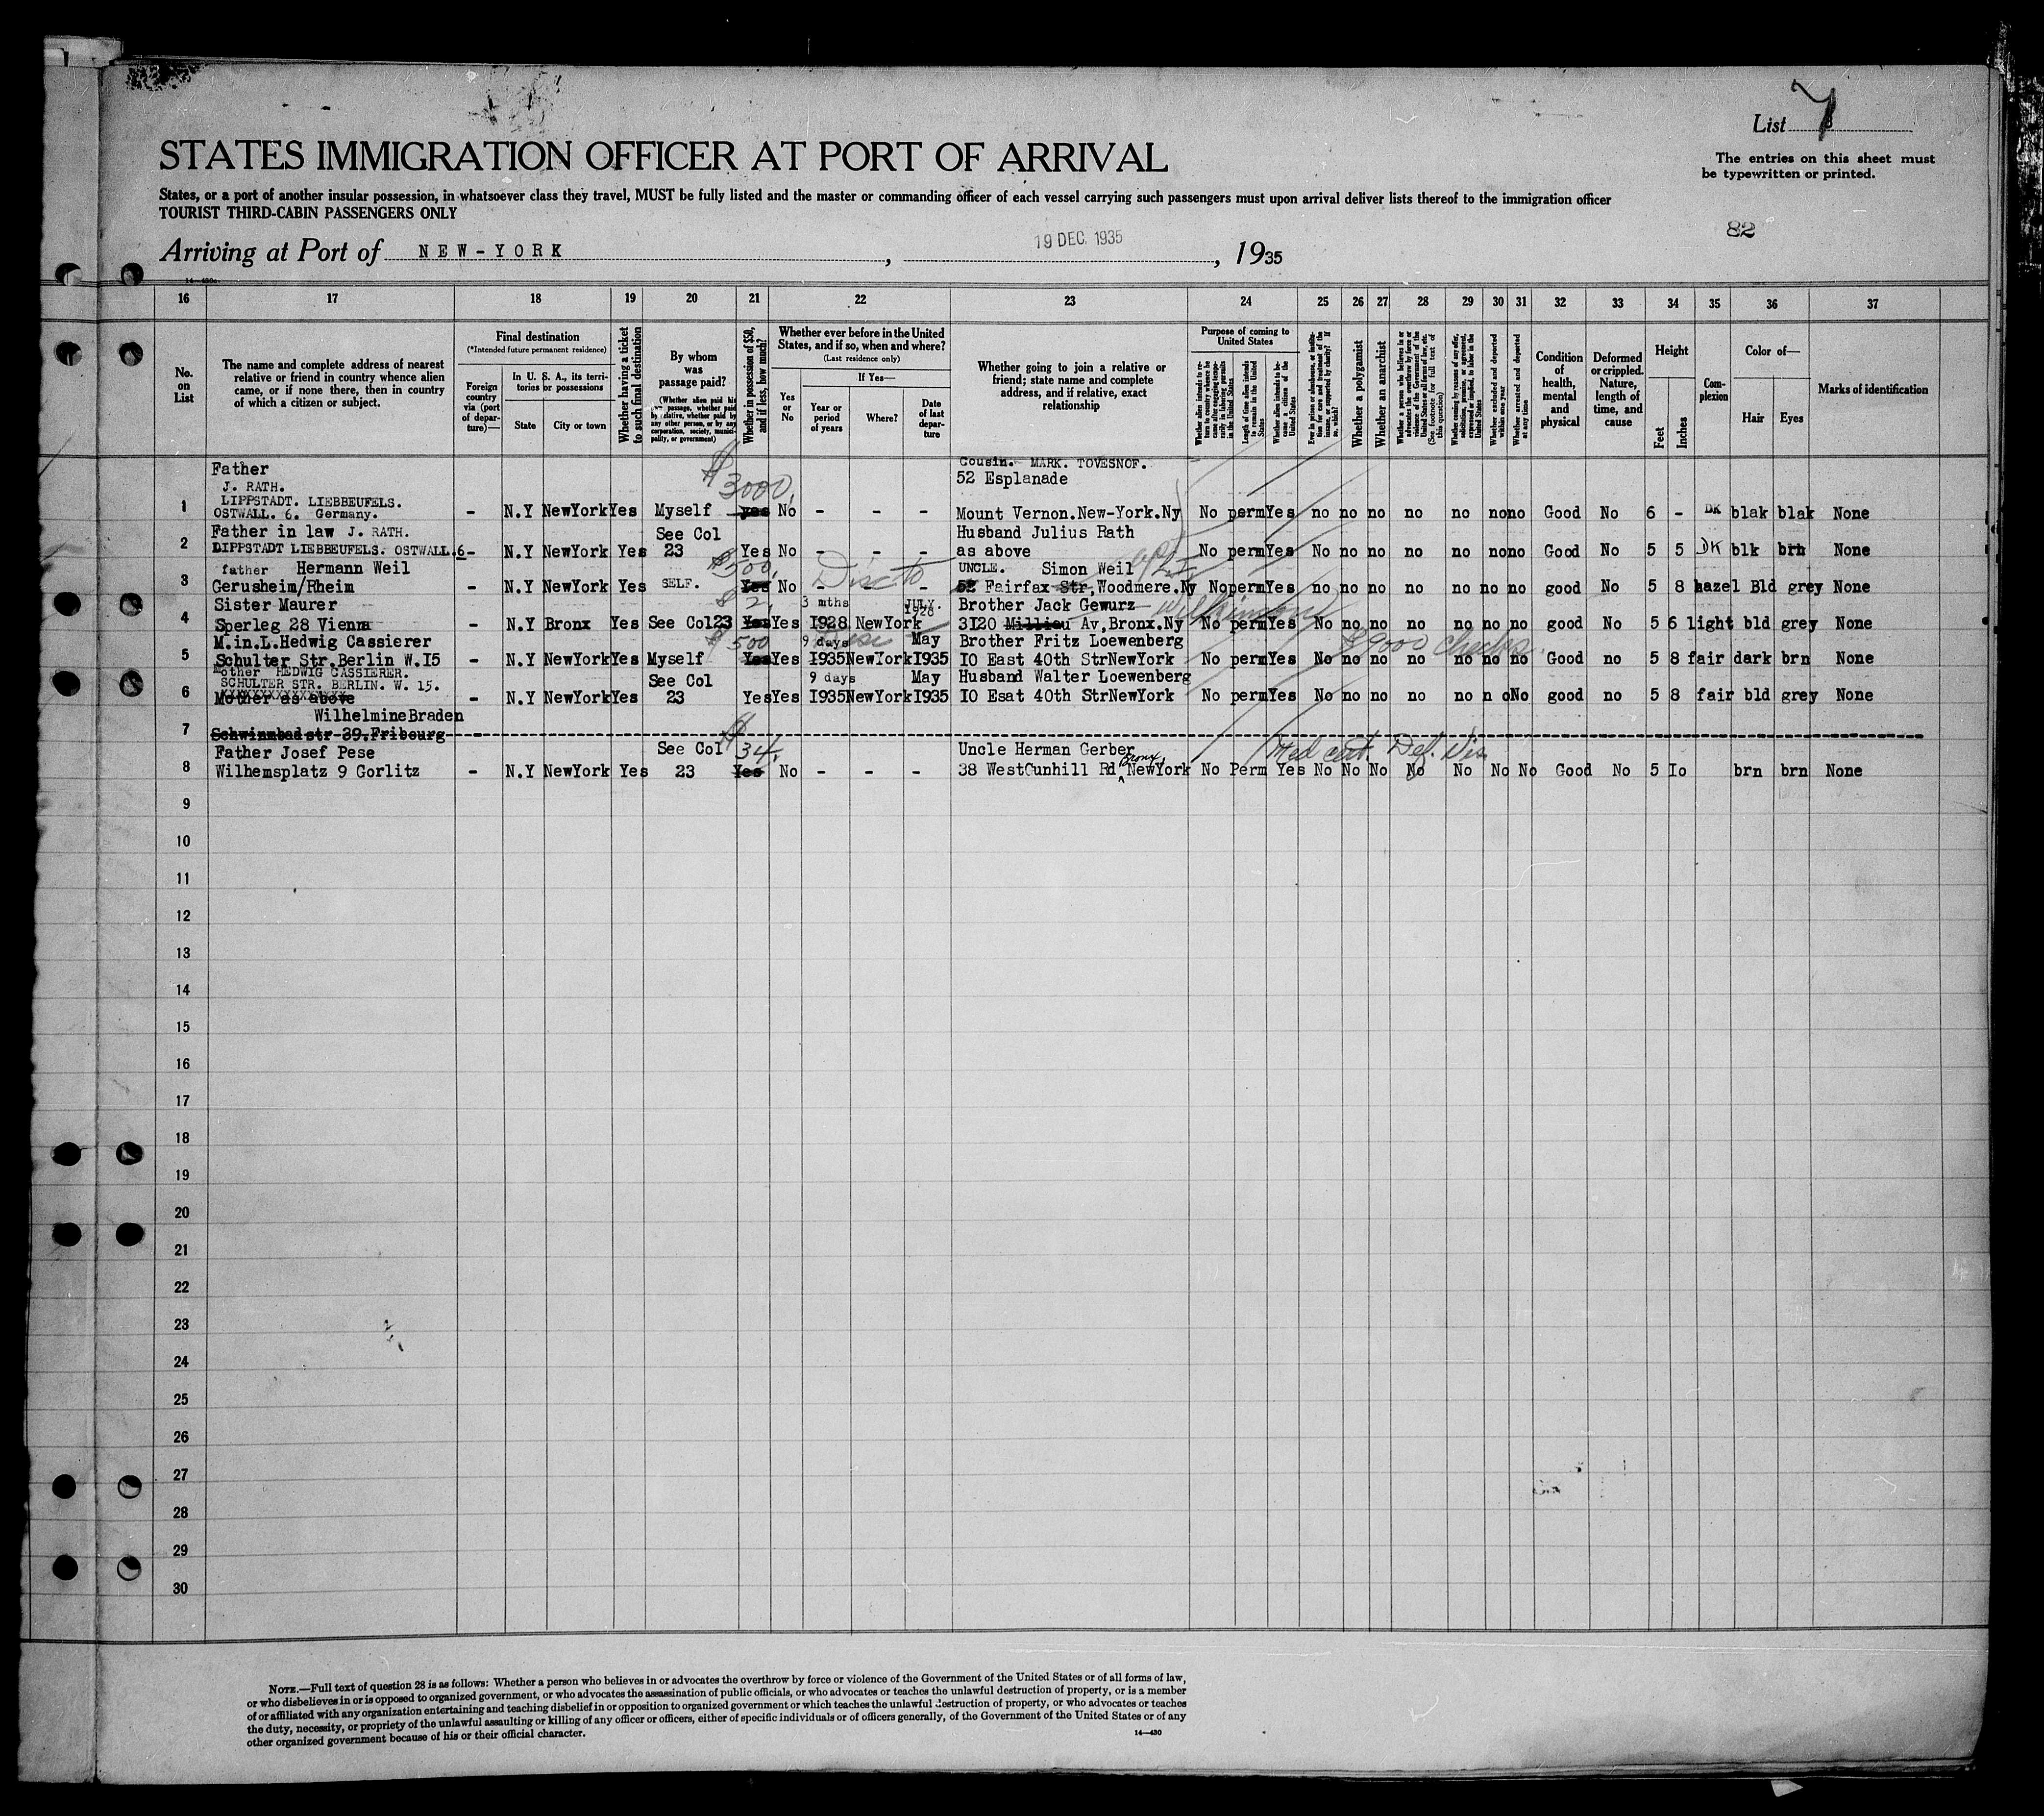 List 7
STATES IMMIGRATION OFFICER AT PORT OF ARRIVAL
The entries on this sheet must
be typewritten or printed.
States, or a port of another insular possession, in whatsoever class they travel, MUST be fully listed and the master or commanding officer of each vessel carrying such passengers must upon arrival deliver lists thereof to the immigration officer
TOURIST THIRD-CABIN PASSENGERS ONLY
82
Arriving at Port of NEW-YORK , 19 DEC. 1935 , 1935
16 17 18 19 20 21 22 23 24 25 26 27 28 29 30 31 32 33 34 35 36 37
No. on List
The name and complete address of nearest relative or friend in country whence alien came, or if none there, then in country of which a citizen or subject.
Final destination
(*Intended future permanent residence)
Foreign country via (port of departure)—
In U. S. A., its territories or possessions
State
City or town
Whether having a ticket to such final destination
By whom was passage paid?
(Whether alien paid his own passage, whether paid by relative, whether paid by any other person, or by any corporation, society, municipality, or government)
Whether in possession of $50, and if less, how much?
Whether ever before in the United States, and if so, when and where?
(Last residence only)
Yes or No
If Yes—
Year or period of years
Where?
Date of last departure
Whether going to join a relative or friend; state name and complete address, and if relative, exact relationship
Purpose of coming to United States
Length of time alien intends to remain in the United States
Whether alien intends to become a citizen of the United States
Whether a polygamist
Whether an anarchist
Whether excluded and deported within one year
Whether arrested and deported at any time
Condition of health, mental and physical
Deformed or crippled. Nature, length of time, and cause
Height
Feet
Inches
Complexion
Color of—
Hair
Eyes
Marks of identification
Father Cousin. MARK. TOVESNOF.
J. RATH. $3000. 52 Esplanade
LIPPSTADT. LIEBBEUFELS.
1 OSTWALL. 6. Germany. - N.Y NewYork Yes Myself yes No - - - Mount Vernon.New-York.Ny No perm Yes no no no no no no no Good No 6 - DK blak blak None
Father in law J. RATH. See Col Husband Julius Rath
2 LIPPSTADT LIEBBEUFELS. OSTWALL.6 - N.Y NewYork Yes 23 Yes No - - - as above No perm Yes No no no no no no no Good No 5 5 DK blk brn None
father Hermann Weil $500. Disc to UNCLE. Simon Weil
3 Gerusheim/Rheim - N.Y NewYork Yes SELF. Yes No - - - 52 Fairfax Str,Woodmere.Ny No perm Yes no no no no no no no good No 5 8 hazel Bld grey None
Sister Maurer $2. 3 mths JULY. 1928 Brother Jack Gewurz
4 Sperleg 28 Vienna - N.Y Bronx Yes See Col23 Yes Yes I928 NewYork 3I20 Av,Bronx.Ny No perm Yes No no no no no no no good No 5 6 light bld grey None
M.in.L.Hedwig Cassierer $500 9 days May Brother Fritz Loewenberg $9000 checks.
5 Schulter Str.Berlin W.I5 - N.Y NewYork Yes Myself Yes Yes I935 NewYork I935 I0 East 40th StrNewYork No perm Yes No no no no no no no Good no 5 8 fair dark brn None
Mother HEDWIG CASSIERER.
SCHULTER STR. BERLIN. W. 15. See Col 9 days May Husband Walter Loewenberg
6 Mother as above - N.Y NewYork Yes 23 Yes Yes I935 NewYork I935 I0 Esat 40th StrNewYork No perm Yes No no no no no n o No good no 5 8 fair bld grey None
WilhelmineBraden
7 Schwimmbad str 39.Fribourg
Father Josef Pese See Col $34. Uncle Herman Gerber Bronx, Med cert. Def. Vis
8 Wilhemsplatz 9 Gorlitz - N.Y NewYork Yes 23 Yes No - - - 38 WestGunhill Rd NewYork No Perm Yes No No No No No No No Good No 5 Io brn brn None
9
10
11
12
13
14
15
16
17
18
19
20
21
22
23
24
25
26
27
28
29
30
NOTE.—Full text of question 28 is as follows: Whether a person who believes in or advocates the overthrow by force or violence of the Government of the United States or of all forms of law,
or who disbelieves in or is opposed to organized government, or who advocates the assassination of public officials, or who advocates or teaches the unlawful destruction of property, or is a member
of or affiliated with any organization entertaining and teaching disbelief in or opposition to organized government or which teaches the unlawful destruction of property, or who advocates or teaches
the duty, necessity, or propriety of the unlawful assaulting or killing of any officer or officers, either of specific individuals or of officers generally, of the Government of the United States or of any
other organized government because of his or their official character. 14—430